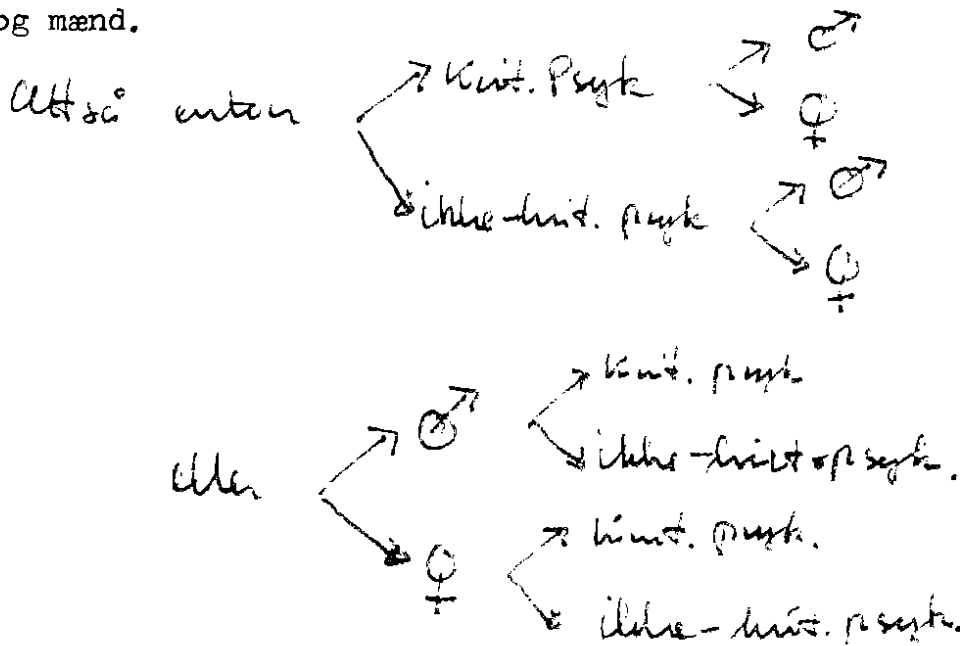 og mænd.
♂
Altså enten Krit. Psyk
♀
♂
ikke-krit. psyk
♀
krit. psyk
♂
ikke-krit. psyk.
eller
krit. psyk.
♀
ikke-krit. psyk.